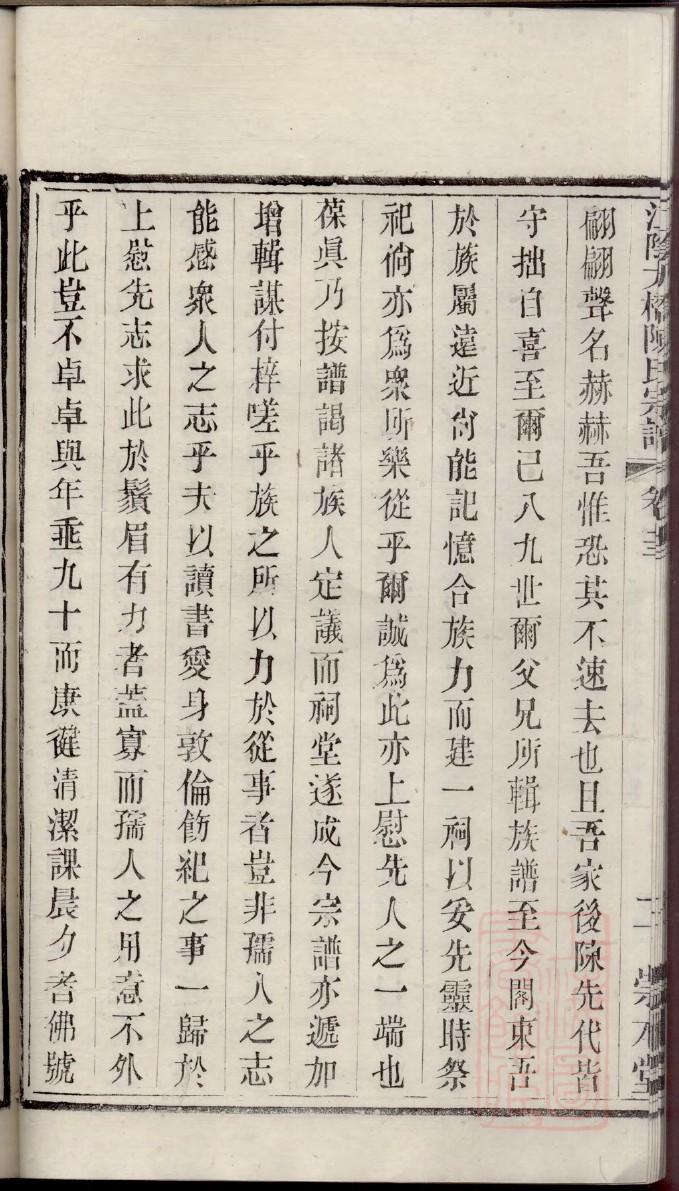 江陰九橋陳氏宗譜 卷
翩翩聲名赫赫吾惟恐其不速去也且吾家後陳先代皆
守拙自喜至爾已八九世爾父兄所輯族譜至今閣束吾
於族屬遠近尙能記憶合族力而建一祠以妥先靈時祭
祀倘亦爲衆所樂從乎爾誠爲此亦上慰先人之一端也
葆眞乃按譜謁諸族人定議而祠堂遂成今宗譜亦遞加
增輯謀付梓嗟乎族之所以力於從事者豈非孺人之志
能感衆人之志乎夫以讀書愛身敦倫飭祀之事一歸於
上慰先志求此於鬚眉有力者蓋寡而孺人之用意不外
乎此豈不卓卓與年垂九十而康健清潔課晨夕者佛號